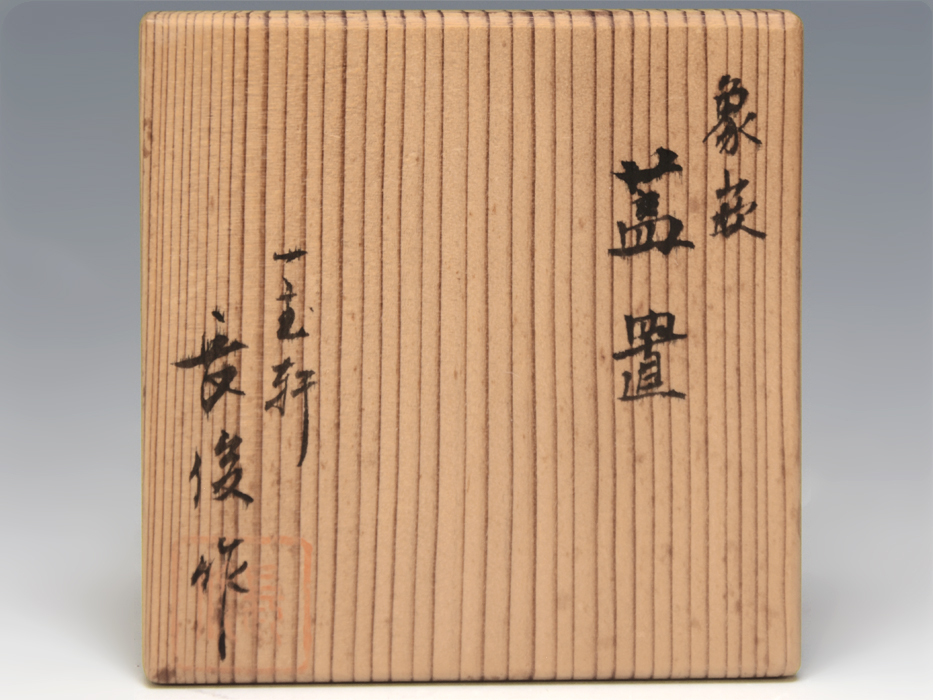 象嵌
蓋置
一玄軒
長俊作